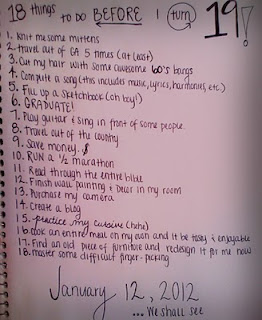 18 things to do BEFORE I turn 19!
1. Knit me some mittens
2. Travel out of GA 5 times (at least)
3. Cut my hair with some awesome 60's bangs
4. Compute a song (this includes music, lyrics, harmonies, etc.)
5. Fill up a Sketchbook (oh boy!)
6. GRADUATE!
7. Play guitar & sing in front of some people.
8. Travel out of the country
9. Save money. $
10. RUN a 1/2 marathon
11. Read through the entire bible
12. Finish wall painting & decor in my room
13. Purchase my camera
14. Create a blog
15. practice my cursive (haha)
16. Cook an entire meal on my own and it be tasty & enjoyable
17. Find an old piece of furniture and redesign it for me now
18. master some difficult finger-picking
January 12, 2012
... We shall see